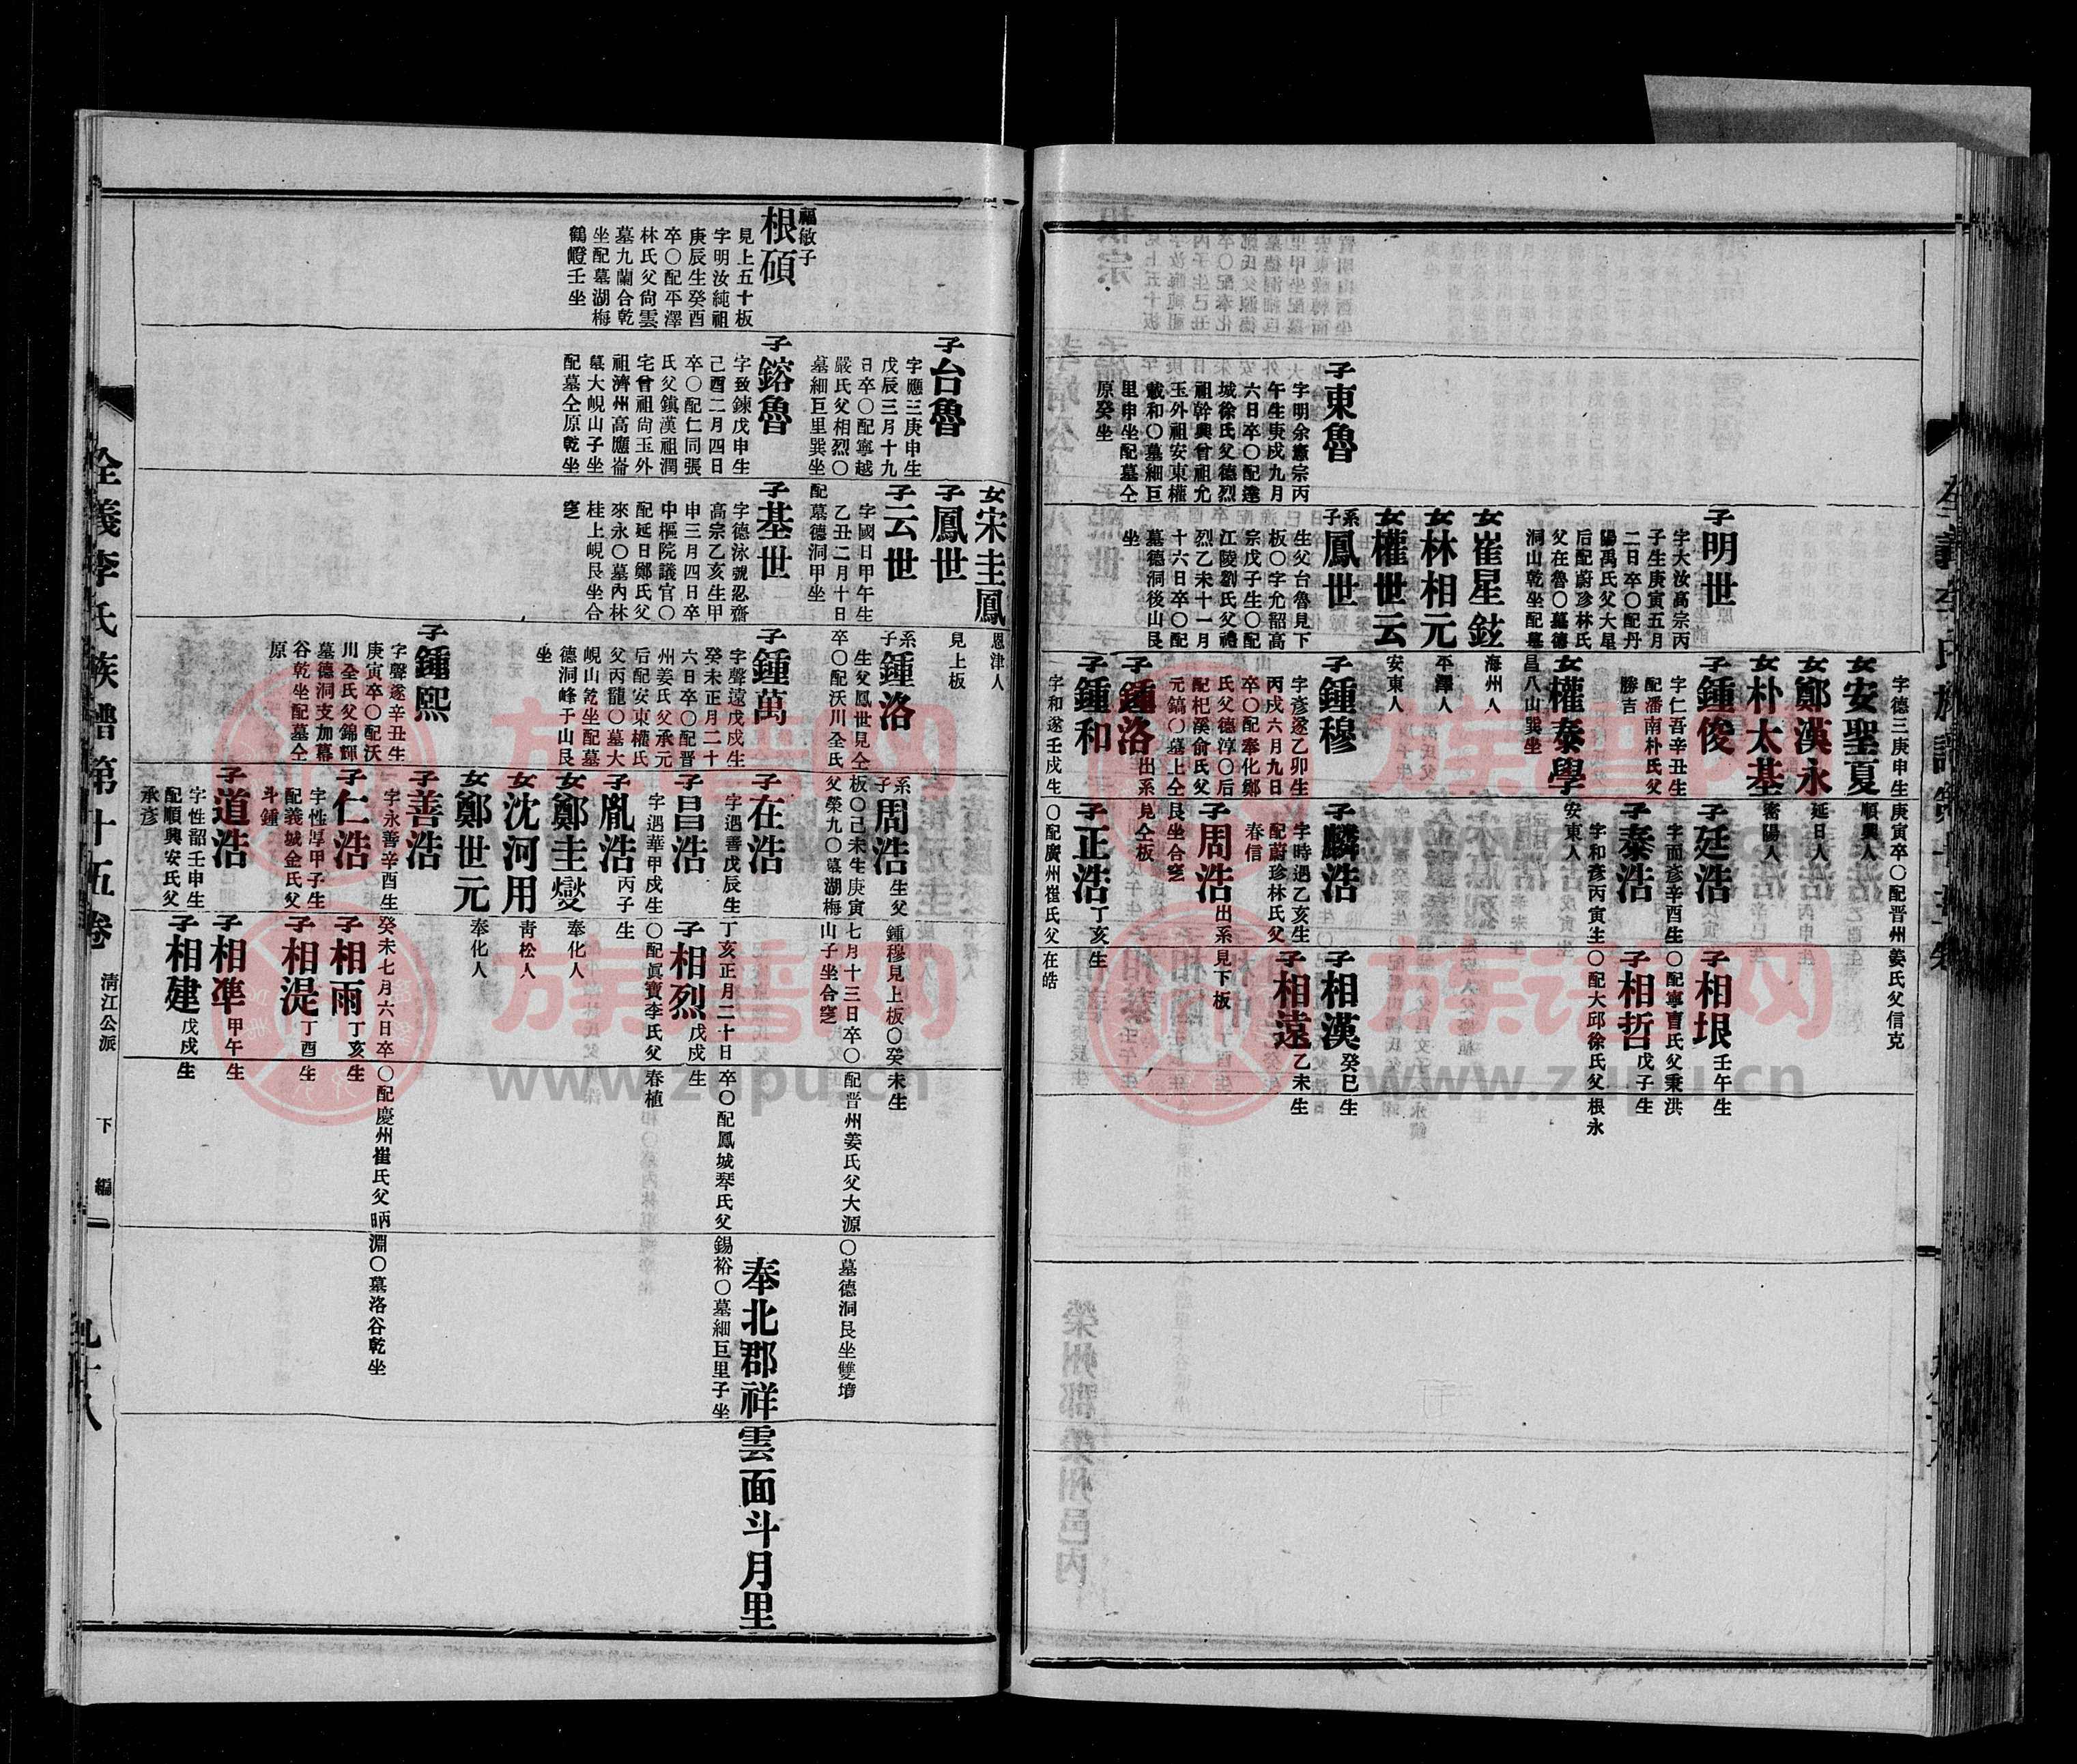 子東魯
字明余憲宗丙
午生庚戌九月
六日卒〇配達
城徐氏父德烈
祖幹興曾祖允
玉外祖安東權
載和〇墓細巨
里申坐配墓仝
原癸坐
子明世
字大汝高宗丙
子生庚寅五月
二日卒〇配丹
陽禹氏父大星
后配蔚珍林氏
父在魯〇墓德
洞山乾坐配墓
昌八山巽坐
女崔星鉉
海州人
女林相元
平澤人
女權世云
安東人
系子鳳世
生父台魯見下
板〇字允韶高
宗戊子生〇配
江陵劉氏父禮
烈乙未十一月
十六日卒〇配
墓德洞後山艮
坐
字德三庚申生
庚寅卒〇配晋州姜氏父信克
女安聖夏
順興人
女鄭漢永
延日人
女朴太基
密陽人
子鍾俊
字仁吾辛丑生
配潘南朴氏父
勝吉
女權泰學
安東人
子鍾穆
字彥遂乙卯生
丙戌六月九日
卒〇配奉化鄭
氏父德淳〇后
配杞溪俞氏父
元鎬〇墓上仝
艮坐合窆
子鍾洛
出系見仝板
子鍾和
字和遂壬戌生
〇配廣州崔氏父在皓
子廷浩
字而彥辛酉生〇配寧曺氏父秉洪
子泰浩
字和彥丙寅生〇配大邱徐氏父根永
子麟浩
字時遇乙亥生
配蔚珍林氏父
春信
子周浩
出系見下板
子正浩
丁亥生
子相垠
壬午生
子相哲
戊子生
子相漢
癸巳生
子相遠
乙未生
福敏子
根碩
見上五十板
字明汝純祖
庚辰生癸酉
卒〇配平澤
林氏父尙雲
墓九蘭合乾
坐配墓湖梅
鶴嶝壬坐
子台魯
字應三庚申生
戊辰三月十九
日卒〇配寧越
嚴氏父相烈〇
墓細巨里巽坐
配墓德洞甲坐
子鎔魯
字致鍊戊申生
己酉二月四日
卒〇配仁同張
氏父鎮漢祖潤
宅曾祖尙玉外
祖濟州高應崙
墓大峴山子坐
配墓仝原乾坐
女宋圭鳳
恩津人
子鳳世
見上板
子云世
字國日甲午生
乙丑二月十日
卒〇配沃川全氏
子基世
字德泳號忍齋
高宗乙亥生甲
申三月四日卒
中樞院議官〇
配延日鄭氏父
來永〇墓內林
桂上峴艮坐合
窆
系子鍾洛
生父鳳世見仝板〇己未生庚寅七月十三日卒〇配晋州姜氏父大源〇墓德洞艮坐雙墳
父榮九〇墓湖梅山子坐合窆
子鍾萬
字聲遠戊戌生
癸未正月二十
六日卒〇配晋
州姜氏父承元
后配安東權氏
父丙龍〇墓大
峴山乾坐配墓
德洞峰于山艮
坐
子鍾熙
字聲遂辛丑生
庚寅卒〇配沃
川全氏父錦輝
墓德洞支加幕
谷乾坐配墓仝
原
系子周浩
生父鍾穆見上板〇癸未生
子在浩
字遇善戊辰生丁亥正月二十日卒〇配鳳城琴氏父錫裕〇墓細巨里子坐
子昌浩
字遇華甲戌生〇配眞寶李氏父春植
子胤浩
丙子生
女鄭圭燮
奉化人
女沈河用
靑松人
女鄭世元
奉化人
子善浩
字永善辛酉生癸未七月六日卒〇配慶州崔氏父昞淵〇墓洛谷乾坐
子仁浩
字性厚甲子生
配義城金氏父
斗鍾
子道浩
字性韶壬申生
配順興安氏父
承彥
子相烈
戊戌生
子相雨
丁亥生
子相湜
丁酉生
子相準
甲午生
子相建
戊戌生
奉北郡祥雲面斗月里
全義李氏族譜第十五卷
淸江公派
下編
九十八
族谱网
www.zupu.cn